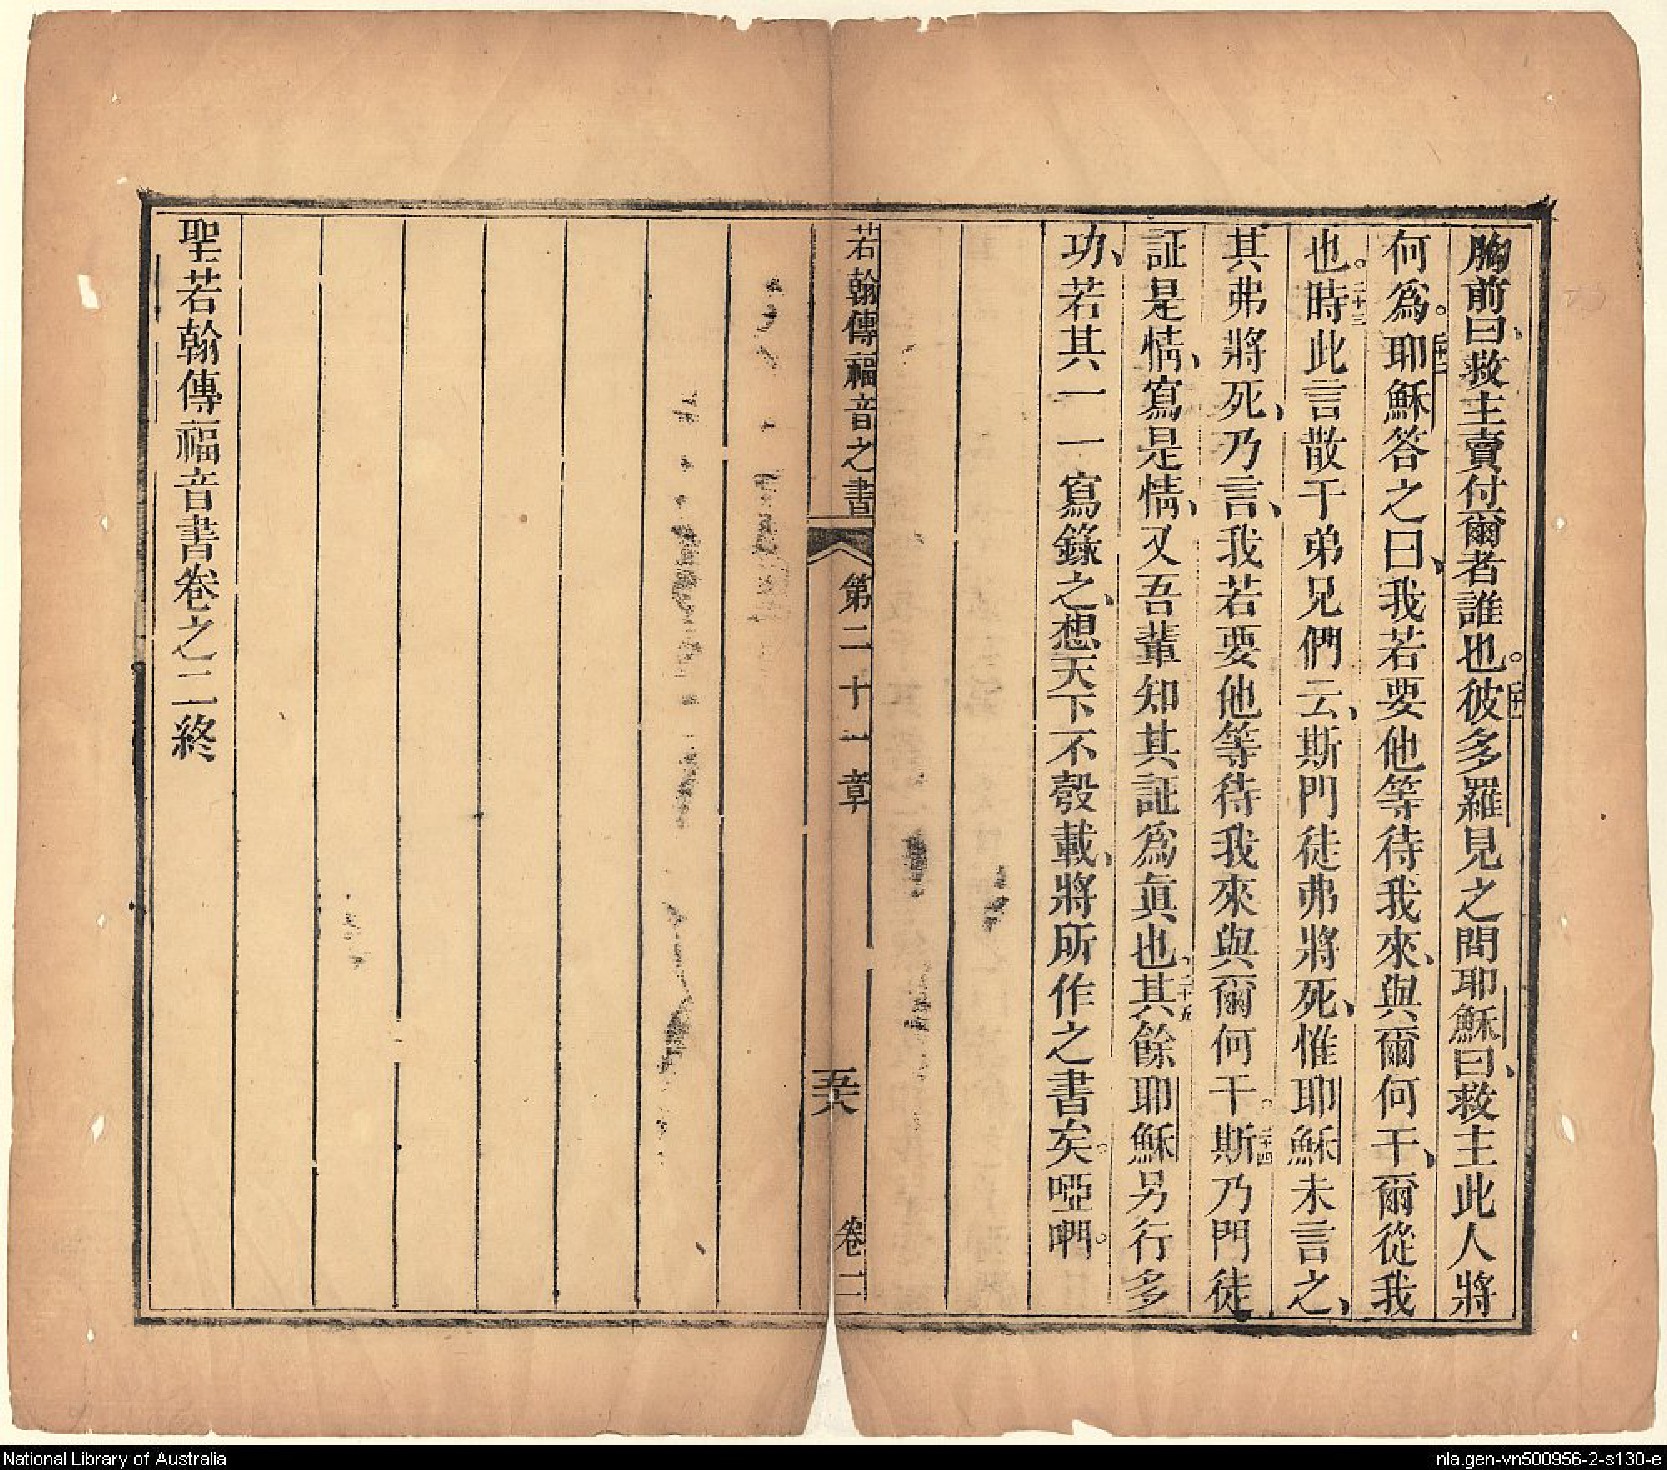 胸前曰、救主賣付爾者誰也。二十一彼多羅見之問耶穌曰、救主此人將
何爲。二十二耶穌答之曰、我若要他等待我來、與爾何干、爾從我
也。二十三時此言散于弟兄們云、斯門徒弗將死、惟耶穌未言之、
其弗將死、乃言、我若要他等待我來與爾何干。二十四斯乃門徒
証是情、寫是情、又吾輩知其証爲真也。二十五其餘耶穌另行多
功、若其一一寫錄之、想天下不彀載、將所作之書矣。啞𠵽。
若翰傳福音之書
第二十一章
五六
卷二
聖若翰傳福音書卷之二終
National Library of Australia
nla.gen-vn500956-2-s130-e